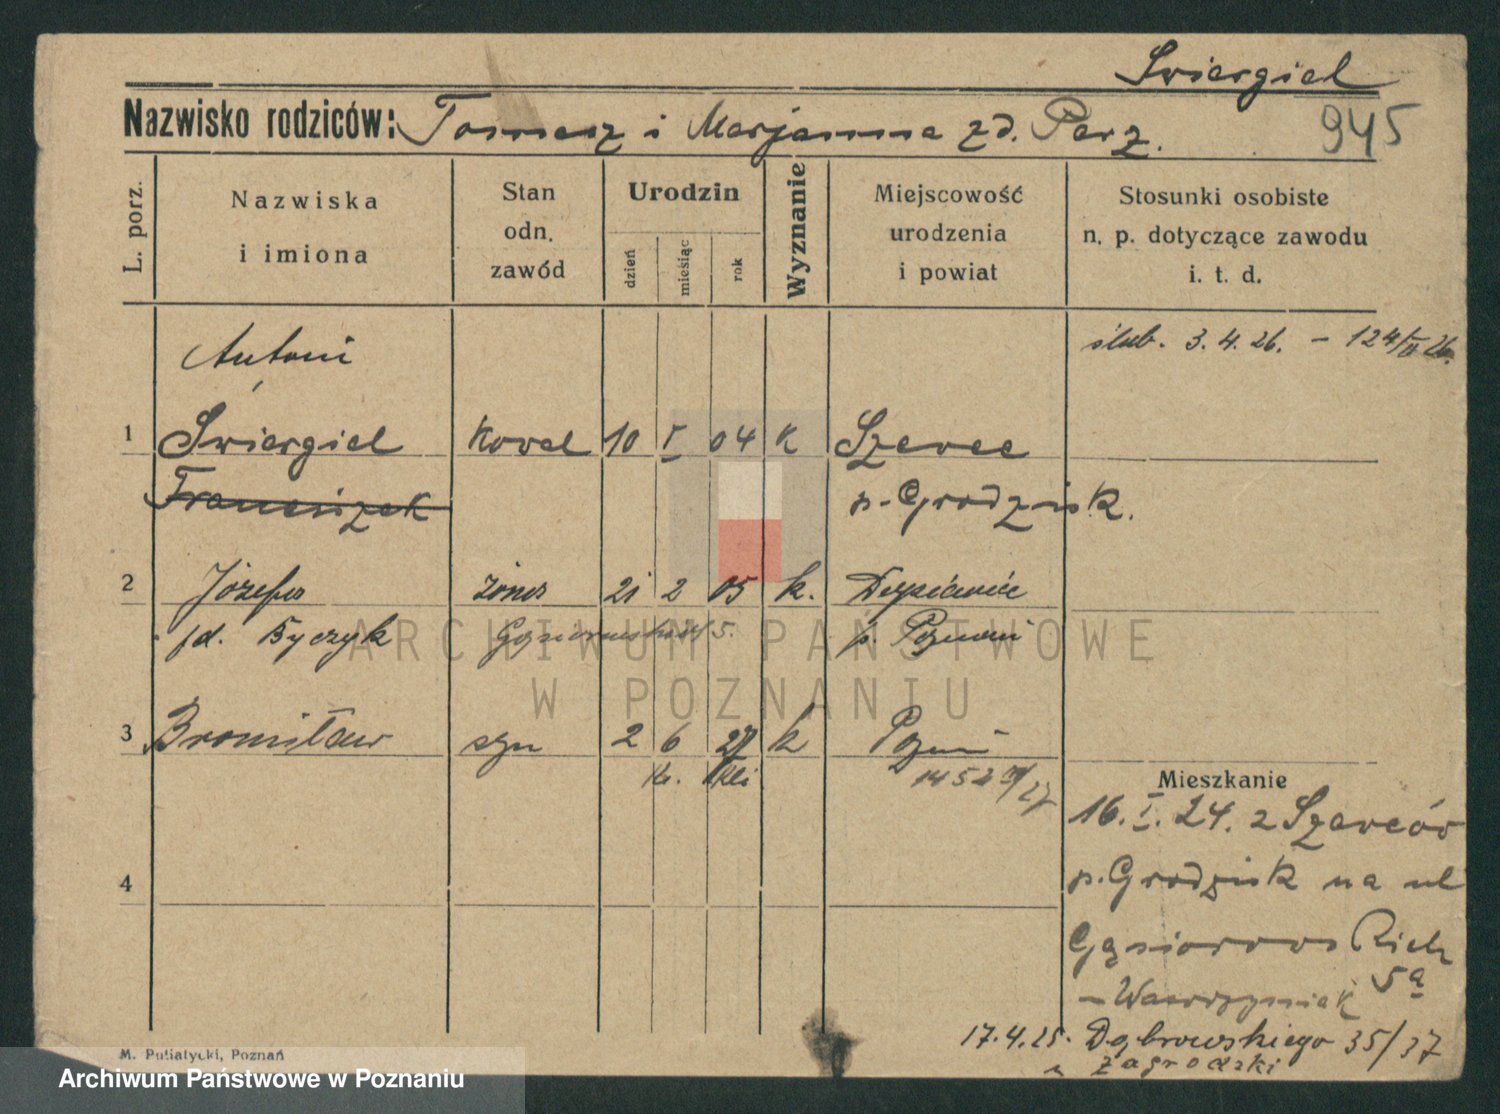 Swiergiel
945
Nazwisko rodziców: Tomasz i Marjanna zd. Parz.
L. porz.
Nazwiska
i imiona
Stan
odn.
zawód
Urodzin
dzień
miesiąc
rok
Wyznanie
Miejscowość
urodzenia
i powiat
Stosunki osobiste
n. p. dotyczące zawodu
i. t. d.
Antoni
ślub. 3.4.26. - 124/II 26.
1 Swiergiel kowal 10 I 04 k Szewce
Franciszek p. Grodzisk.
2 Józefa żona 21 2 05 k.
zd. Byczyk p. Poznań
3 Bronisław syn 2 6 27 k Poznań
1452
Mieszkanie
16. I. 24. z Szewców
p. Grodzisk na ul
Gąsiorows Rich
5a
- Wawrzyniak
4
17.4.25. Dąbrowskiego 35/37
u Zagrodzki
M. Putiatycki, Poznań
ARCHIWUM PAŃSTWOWE
W POZNANIU
Archiwum Państwowe w Poznaniu